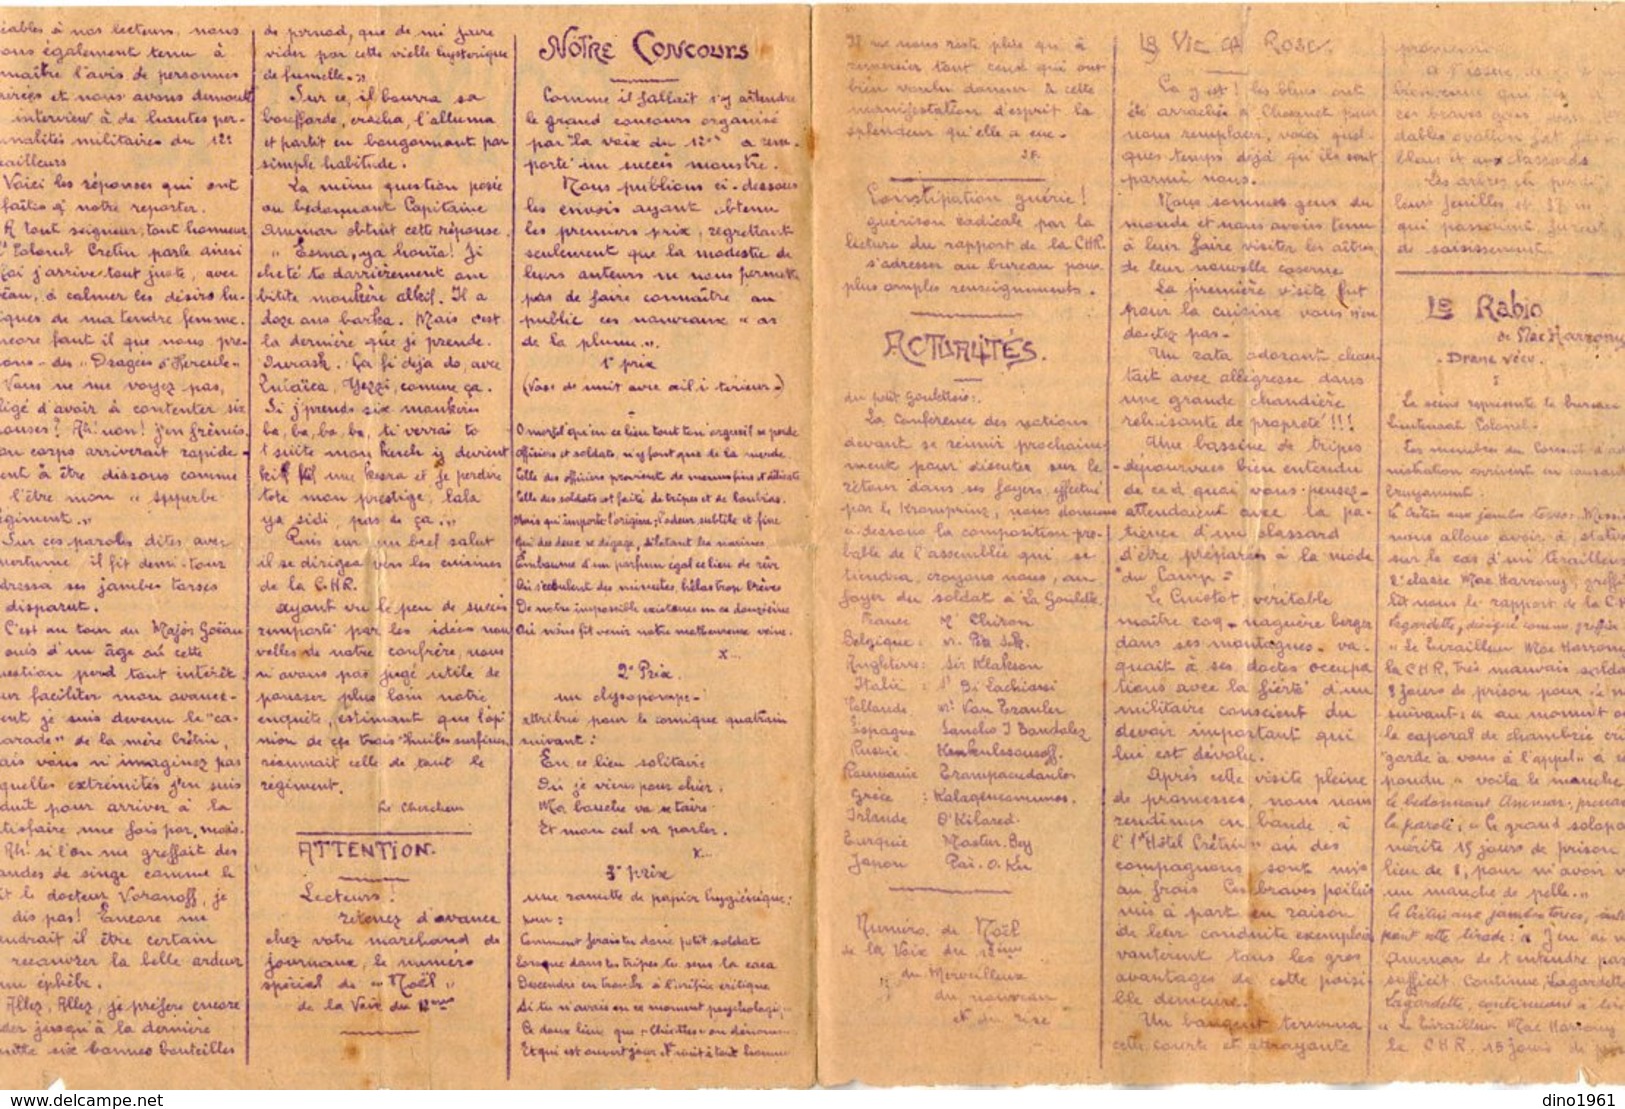 iables à nos lecteurs, nous
ons également tenu à
maître l'avis de personnes
et nous avons demandé
interview à de hautes per-
nnalités militaires du 12e
ailleurs
Voici les réponses qui ont
faites à notre reporter.
A tout seigneur, tout honneur
Colonel Cretin parle ainsi
Moi j'arrive tout juste, avec
à calmer les désirs lu-
iques de ma tendre femme.
ncore faut il que nous pre-
ons des "Dragées d'Hercule"
Vous ne me voyez pas,
ligé d'avoir à contenter six
Ah! non! j'en frémis,
on corps arriverait rapide-
ent à être dissous comme
l'être mon "superbe
égiment."
Sur ces paroles dites avec
il fit demi-tour
dressa ses jambes torses
disparut.
C'est au tour du Major Goëau
mais d'un âge où cette
uestion perd tout intérêt.
ur faciliter mon avance-
ent je suis devenu le "ca-
arade" de la mère Crétin,
ais vous n'imaginez pas
quelles extrémités j'en suis
duit pour arriver à la
tisfaire une fois par mois.
Ah! si l'on me greffait des
andes de singe comme le
it le docteur Voronoff, je
dis pas! Encore me
endrait il être certain
recouvrer la belle ardeur
un éphèbe.
Allez, Allez, je préfère encore
der jusqu'à la dernière
six bonnes bouteilles
de pernod, que de mi faire
vider par cette vielle hysterique
de fumelle."
Sur ce, il bourra sa
bouffarde, cracha, l'alluma
et partit en bougonnant par
simple habitude.
La même question posée
au bedonnant Capitaine
Ammar obtint cette réponse.
"Esma, ya houïa! Ji
cheté to darrièrement one
bitite moukère alkif. Il a
doze ans barka. Mais c'est
la dernière que je prende.
Ça fi deja do, avec
Yezzi, comme ça.
Si j'prends six moukeres
ba, ba, ba, ba, ti verras to
t'suite mon kerch iz devient
kif kif une kesra et je perdre
tote mon prestige, lala
ya sidi, pas de ça."
Puis sur un bref salut
il se dirigea vers les cuisines
de la C.H.R.
Ayant vu le peu de succès
remporté par les idées nou
velles de notre confrère, nous
n'avons pas jugé utile de
pousser plus loin notre
enquête, estimant que l'opi
nion de ces trois "huiles surfines
résumait celle de tout le
régiment.
Le Chercheur
ATTENTION.
Lecteurs!
retenez d'avance
chez votre marchand de
journaux, le numéro
spécial de "Noël"
de la Voix du 12ème
NOTRE CONCOURS
Comme il fallait s'y attendre
le grand concours organisé
par "La voix du 12ème" a rem-
porté un succès monstre.
Nous publions ci-dessous
les envois ayant obtenu
les premiers prix, regrettant
seulement que la modestie de
leurs auteurs ne nous permette
pas de faire connaître au
public ces nouveaux "as
de la plume".
1er prix
(Vase de nuit avec œil intérieur.)
O mortel qu'en ce lieu tout ton orgueil se perde
Officiers et soldats, n'y font que de la merde.
Celle des officiers provient de menus fins et délicats
Celle des soldats est faite de tripes et de loubias.
Mais qu'importe l'origine, l'odeur subtile et fine
Qui des deux se dégage, dilatant les narines
Embaume d'un parfum égal ce lieu de rêve
Où s'écoulent des minutes, hélas trop brèves
De notre impossible existence en ce douzième
Où nous fit venir notre malheureuse veine.
X...
2e Prix.
un clysopompe-
attribué pour le comique quatrain
suivant:
En ce lieu solitaire
Où je viens pour chier.
Ma bouche va se taire
Et mon cul va parler.
X...
3e prix
une ramette de papier hygiénique;
pour:
Comment ferais tu donc petit soldat
Lorsque dans tes tripes tu sens la caca
Descendre en trombe à l'orifice critique
Si tu n'avais en ce moment psychologique
Ce doux lieu que "Chiottes" on dénomme
Et qui est ouvert jour et nuit à tout homme
Il ne nous reste plus qu'à
remercier tout ceux qui ont
bien voulu donner à cette
manifestation d'esprit la
splendeur qu'elle a eue.
J.F.
Constipation guérie!
guérison radicale par la
lecture du rapport de la C.H.R.
s'adresser au bureau pour
plus amples renseignements.
ACTUALITÉS.
du petit Goulettois:.
La Conférence des nations
devant se réunir prochaine-
ment pour discuter sur le
retour dans ses foyers effectué
par le Kronprinz, nous donnons
ci-dessous la composition pro-
bable de l'assemblée qui se
tiendra, croyons nous, au
foyer du soldat à La Goulette.
France Mr Chiron
Belgique:
Angleterre: Sir Klakson
Italie : Si Lachiassi
Hollande
Espagne Sancho I Bandalez
Russie
Roumanie Trompacudanlos
Grèce : Kalaquecomunos.
Irlande O'Kilored.
Turquie Mastur-Bey
Japon Paï-O-Ku
Numéro de Noël
de la Voix du 12ème
du Merveilleux
du nouveau
et du rire
LA VIE EN ROSE.
Ça y est! les bleus ont
été arrachés à Choquet pour
nous remplacer, voici quel-
ques temps déjà qu'ils sont
parmi nous.
Nous sommes gens du
monde et nous avons tenu
à leur faire visiter les aîtres
de leur nouvelle caserne
La première visite fut
pour la cuisine vous n'en
doutez pas.
Un rata odorant chan
tait avec allégresse dans
une grande chaudière
reluisante de propreté!!!
Une bassine de tripes
-dépourvues bien entendu
de ce à quoi vous pensez-
attendaient avec la pa-
tience d'un classard
d'être préparés à la mode
"du Camp"
Le Cuistot, véritable
maître coq-naguère berger
dans ses montagnes- va-
quait à ses doctes occupa
tions avec la fierté d'un
militaire conscient du
devoir important qui
lui est dévolu.
Après cette visite pleine
de promesses, nous nous
rendimes en bande à
l'"Hôtel Crétin" où des
compagnons sont mis
au frais. Ces braves poilus
mis à part en raison
de leur conduite exemplaire
vantèrent tous les gros
avantages de cette paisi-
ble demeure.
Un banquet termina
cette courte et attrayante
promenade
A l'issue de
bienvenue qui
ces braves gars
dables ovation fut
bleus et aux classards.
Les arbres en
leurs feuilles et
qui passaient furent
de saisissement.
Le Rabio
de Mac Harrony
- Drame vécu.
I
La scène représente le bureau
lieutenant Colonel.
Les membres du Conseil d'ad
ministration arrivent en causant
bruyamment:
Le Crétin aux jambes torses. Messi
nous allons avoir à statuer
sur le cas d'un tirailleur
2e classe Mac Harrony, greffi
lit nous le rapport de la C.H
Lagardette, désigné comme greffier.
"Le Tirailleur Mac Harrony
la C.H.R, très mauvais soldat
8 jours de prison pour le m
suivant: "au moment où
le caporal de chambrée cri
"garde à vous à l'appel" a ré
pondu "voila le manche
Le bedonnant Ammar: prenant
la parole: "Ce grand salopa
mérite 15 jours de prison
lieu de 8, pour m'avoir v
un manche de pelle."
Le Crétin aux jambes torses,
pant cette tirade: "J'en ai m
Ammar de t'entendre pas
sufficit. Continue, Lagardette
Lagardette, continuant à lire
"Le Tirailleur Mac Harrony
Le C.H.R. 15 jours de
dino1961